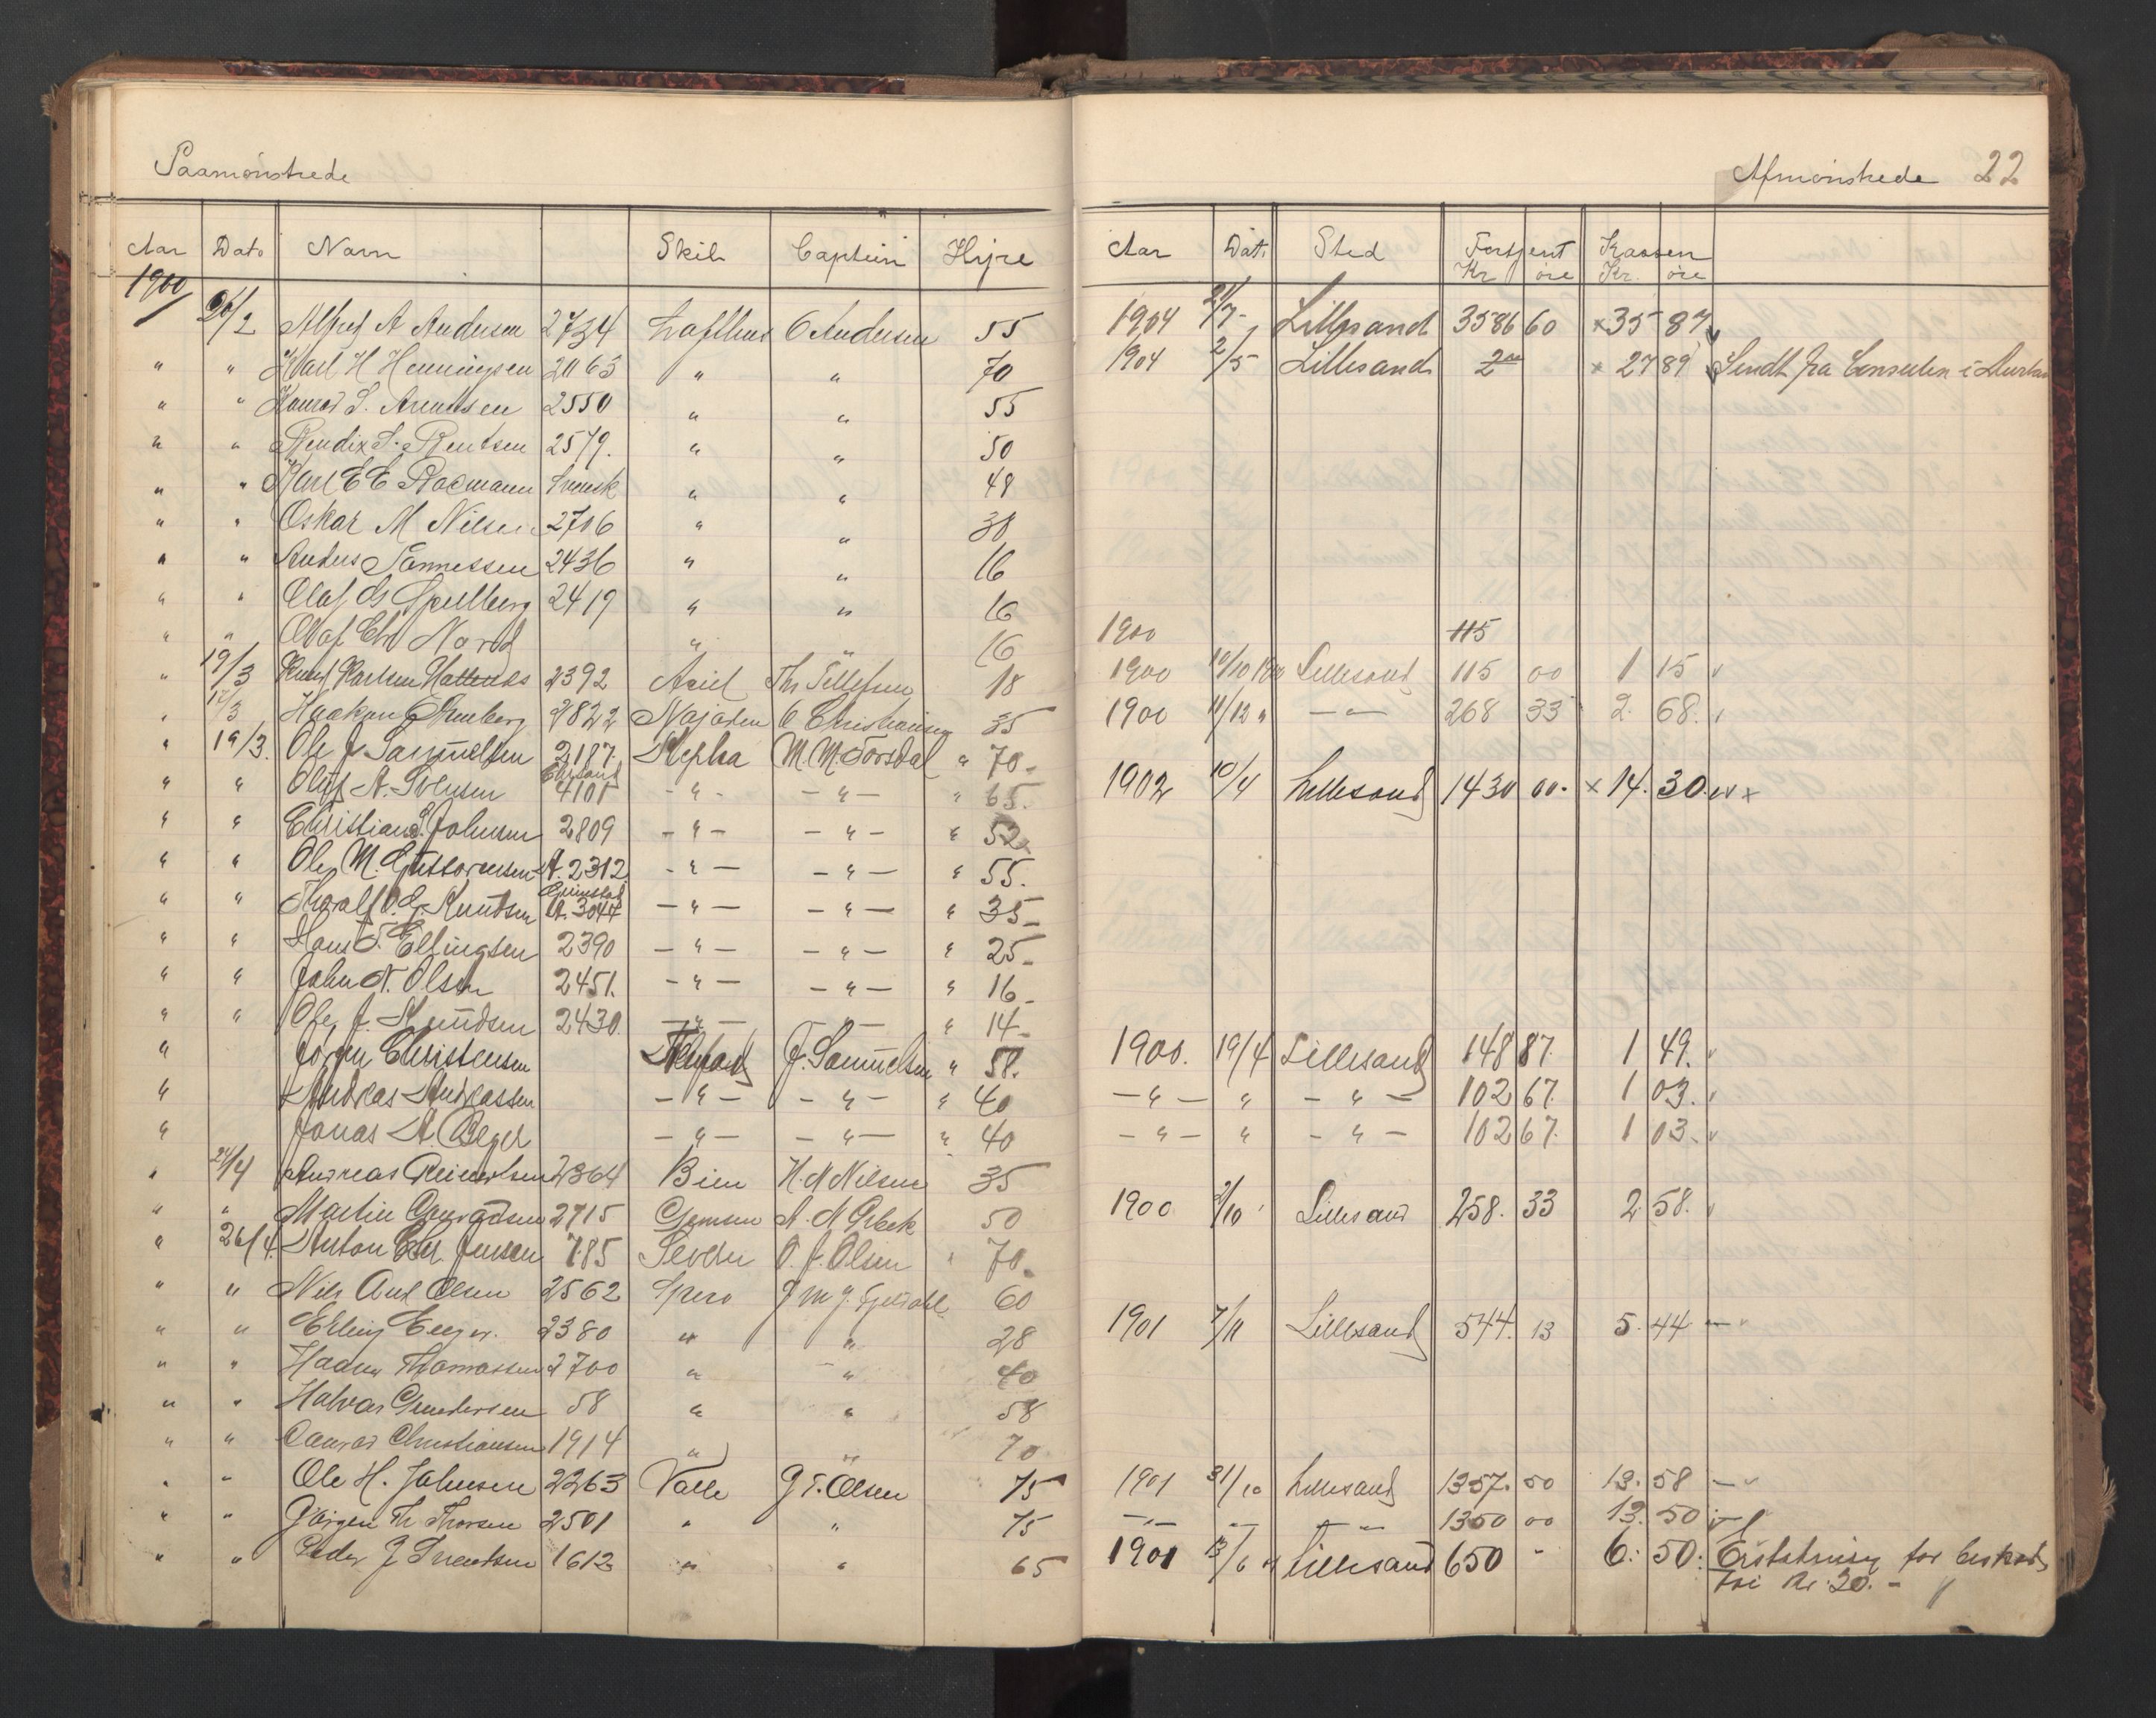 Paamönstrede
Afmönstrede 22
Aar Dato Navn Skib Captein Hyre Aar Dat. Sted Fortjent Kassen
Kr öre Kr. öre
1900
26/2 Alfred A Andersen 2734 Lofthus O Andersen 55 1904 21/7 Lillesand 3586 60 × 35 87
" " Karl H Henningsen 2063 " " 70 1904 2/5 Lillesand × 27 89 Sendt fra Consulen i
" " Konrad S. Arentsen 2550 " " 55
" " Bendix S. Bentsen 2579. " " 50
" " Karl E E Svensk " " 48
" " Oskar M Nilsen 2706 " " 30
" " Anders Tønnessen 2436 " " 16
" " Olaf G Spellberg 2419 " " 16
" " Olaf Chr Nord " " 16 1900 115
" 19/3 Knud Karlsen 2392 Axel Th Tellefsen 18 1900 10/10 1900 Lillesand 115 00 1 15
" 17/3 Haakon 2822 Najaden O Christiansen 35 1900 11/12 " — " — 268 33 2. 68.
" 19/3. Ole J. Samuelsen 2187. Stepha M. M. Torsdal " 70.
" " Oluf A. Iversen 4101 - " - - " - " 65. 1902 10/4 Lillesand 1430 00. × 14. 30.
" " Christian S. Johnsen 2809 - " - - " - " 52.
" " Ole M. Guttormsen A. 2312. - " - - " - " 55.
" " Thoralf O. G. Knudsen Grimstad A. 3044 - " - - " - " 35
" " Hans T. Ellingsen 2390 - " - - " - " 25
" " John N. Olsen 2451. - " - - " - " 16
" " Ole J. Knudsen 2430. - " - - " - " 14
" Jörgen Christensen J. Samuelsen " 58. 1900. 19/4 Lillesand 148 87. 1 49.
" Andreas Andreassen - " - - " - " 40 - " - " - " - 102 67. 1 03.
" Jonas A. Beger - " - - " - " 40 - " - " - " - 102 67. 1 03.
" 24/4 Andreas Reinertsen 2364 Bien H. N Nilsen 35
" " Martin Gunvaldsen 2715 Gjemsen A. N Grbek 50 1900 3/10 Lillesand 258. 33 2 58.
" 26/4. Anton Chr. Jensen 785 Severn O. J. Olsen " 70.
" " Nils Aul Olsen 2562 Spero J M J. Gjeldahl 60
" " Erling Beger. 2380 " " 28 1901 7/11 Lillesand 544. 13 5. 44
" " Thomassen 2700 " " 40
" " Halvar Gundersen 58 " " 58
" " Conrad Christiansen 1914 " " 70
" " Ole H. Johnsen 2263 Valle G T. Olsen 75 1901 31/10 Lillesand 1357. 50 13. 58
" " Jörgen Th Thorsen 2501 " " 75 - " - - " - - " - 1350 00 13. 50
" " Peder J Svendsen 1612 " " 65 1901 13/6 Lillesand Lillesand 650 - 6. 50. Erstatning for
Kr. 20. -